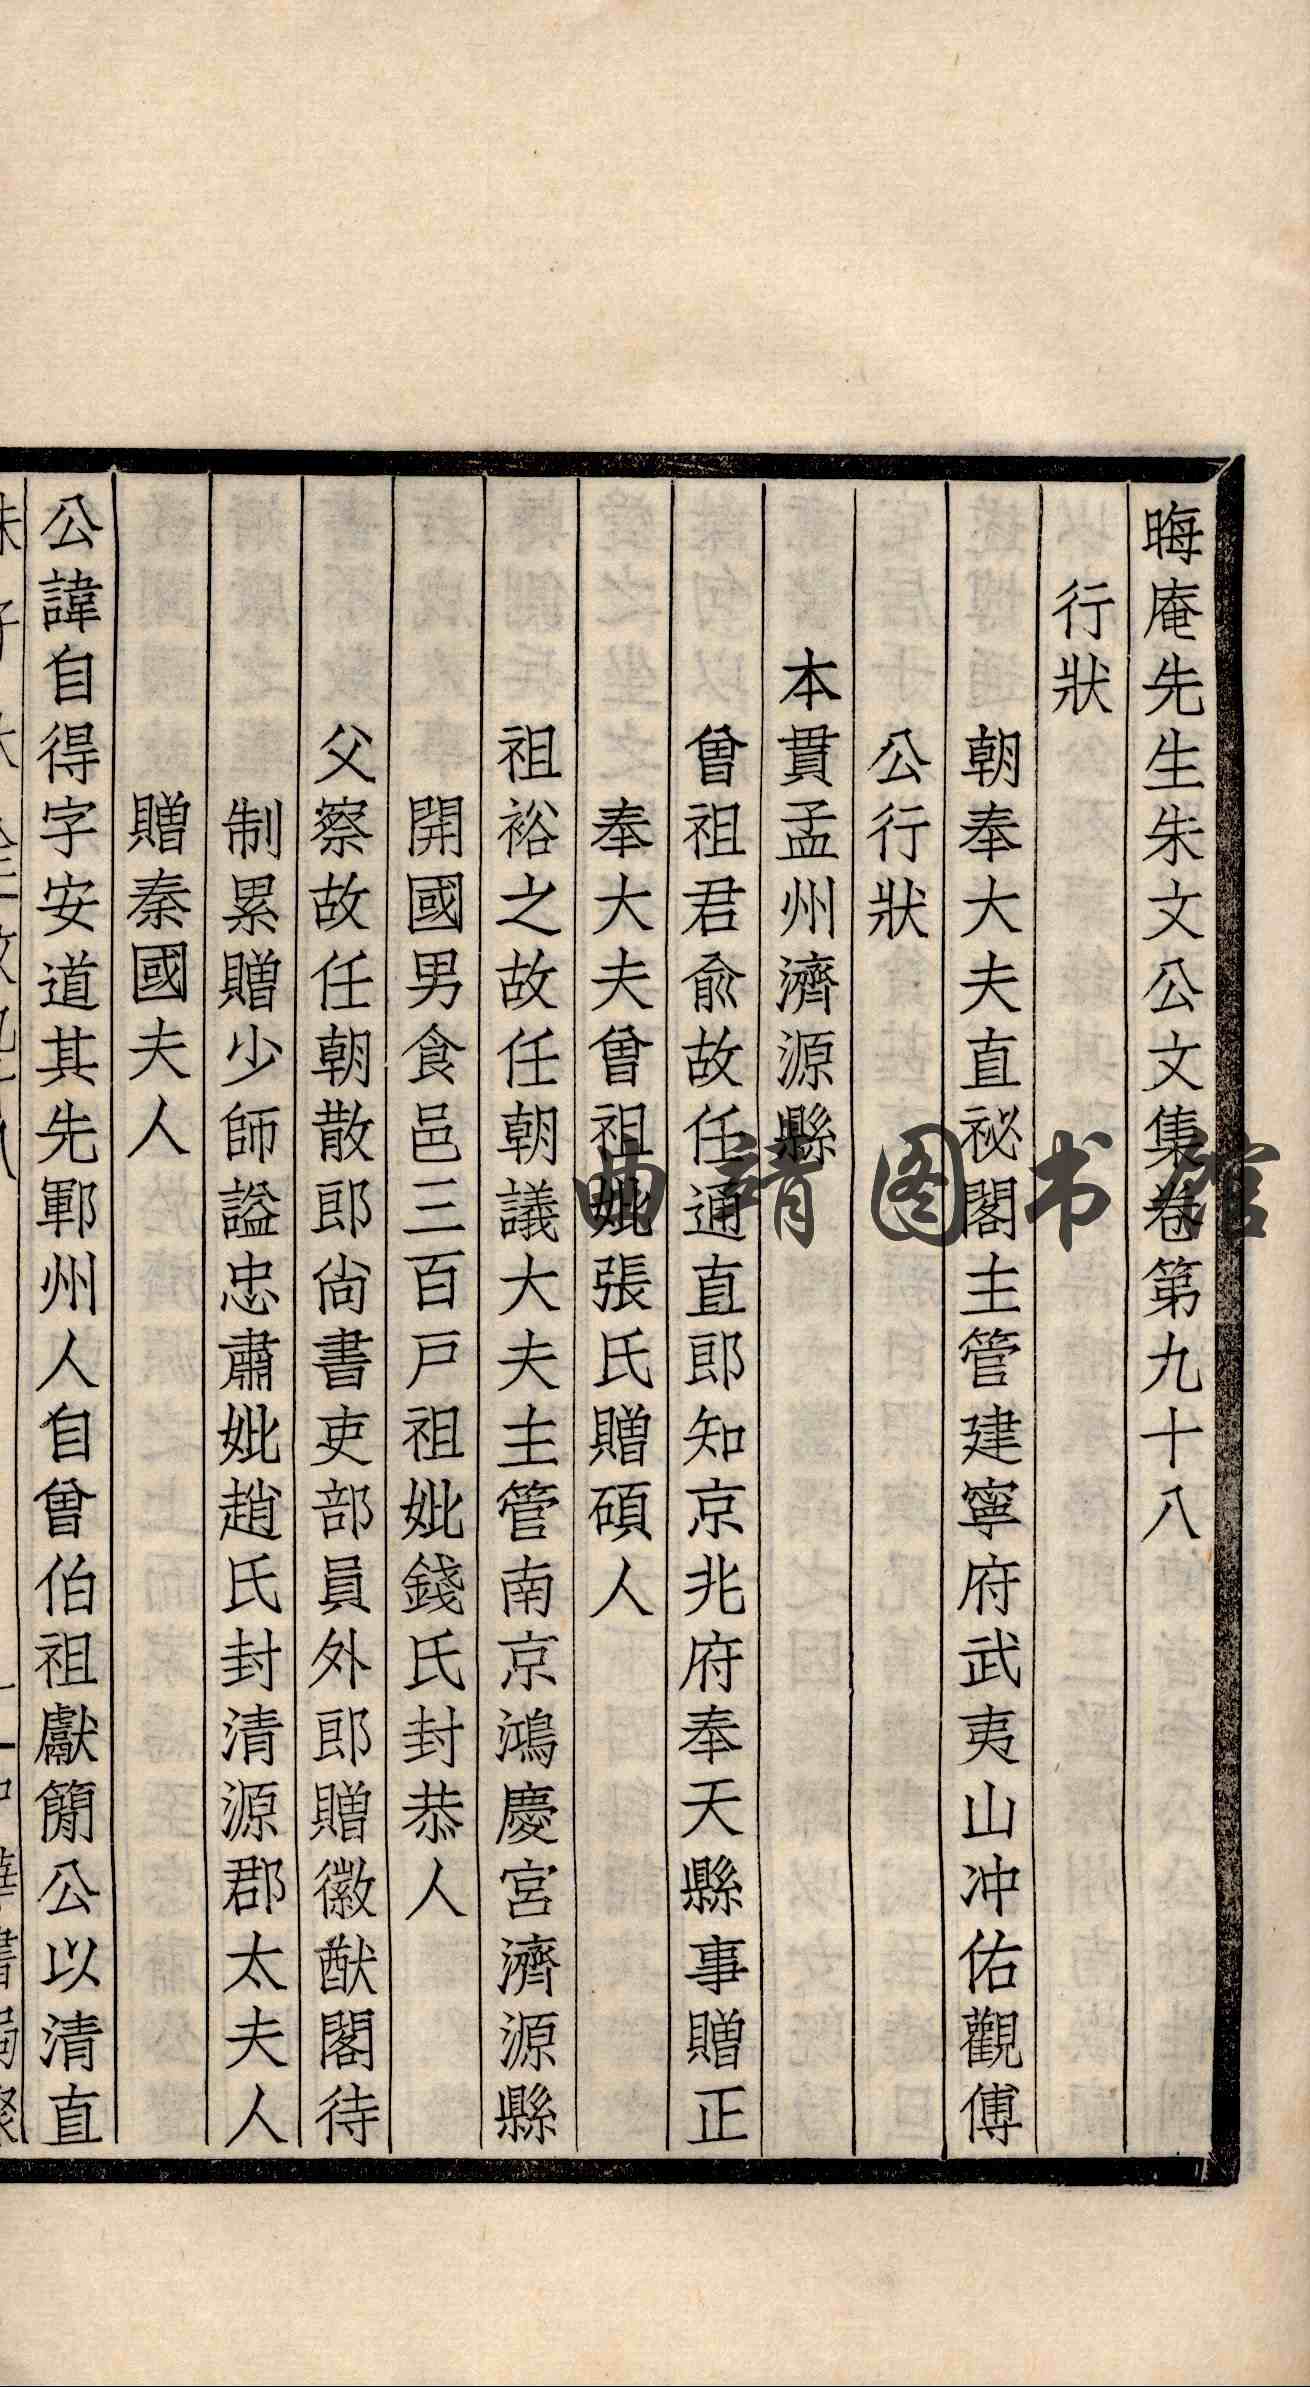 晦庵先生朱文公文集卷第九十八
行狀
朝奉大夫直祕閣主管建寧府武夷山冲佑觀傅
公行狀
本貫孟州濟源縣
曾祖君俞故任通直郎知京兆府奉天縣事贈正
奉大夫曾祖妣張氏贈碩人
祖裕之故任朝議大夫主管南京鴻慶宮濟源縣
開國男食邑三百戶祖妣錢氏封恭人
父察故任朝散郎尚書吏部員外郎贈徽猷閣待
制累贈少師諡忠肅妣趙氏封清源郡太夫人
贈秦國夫人
公諱自得字安道其先鄆州人自曾伯祖獻簡公以清直
曲靖图书馆